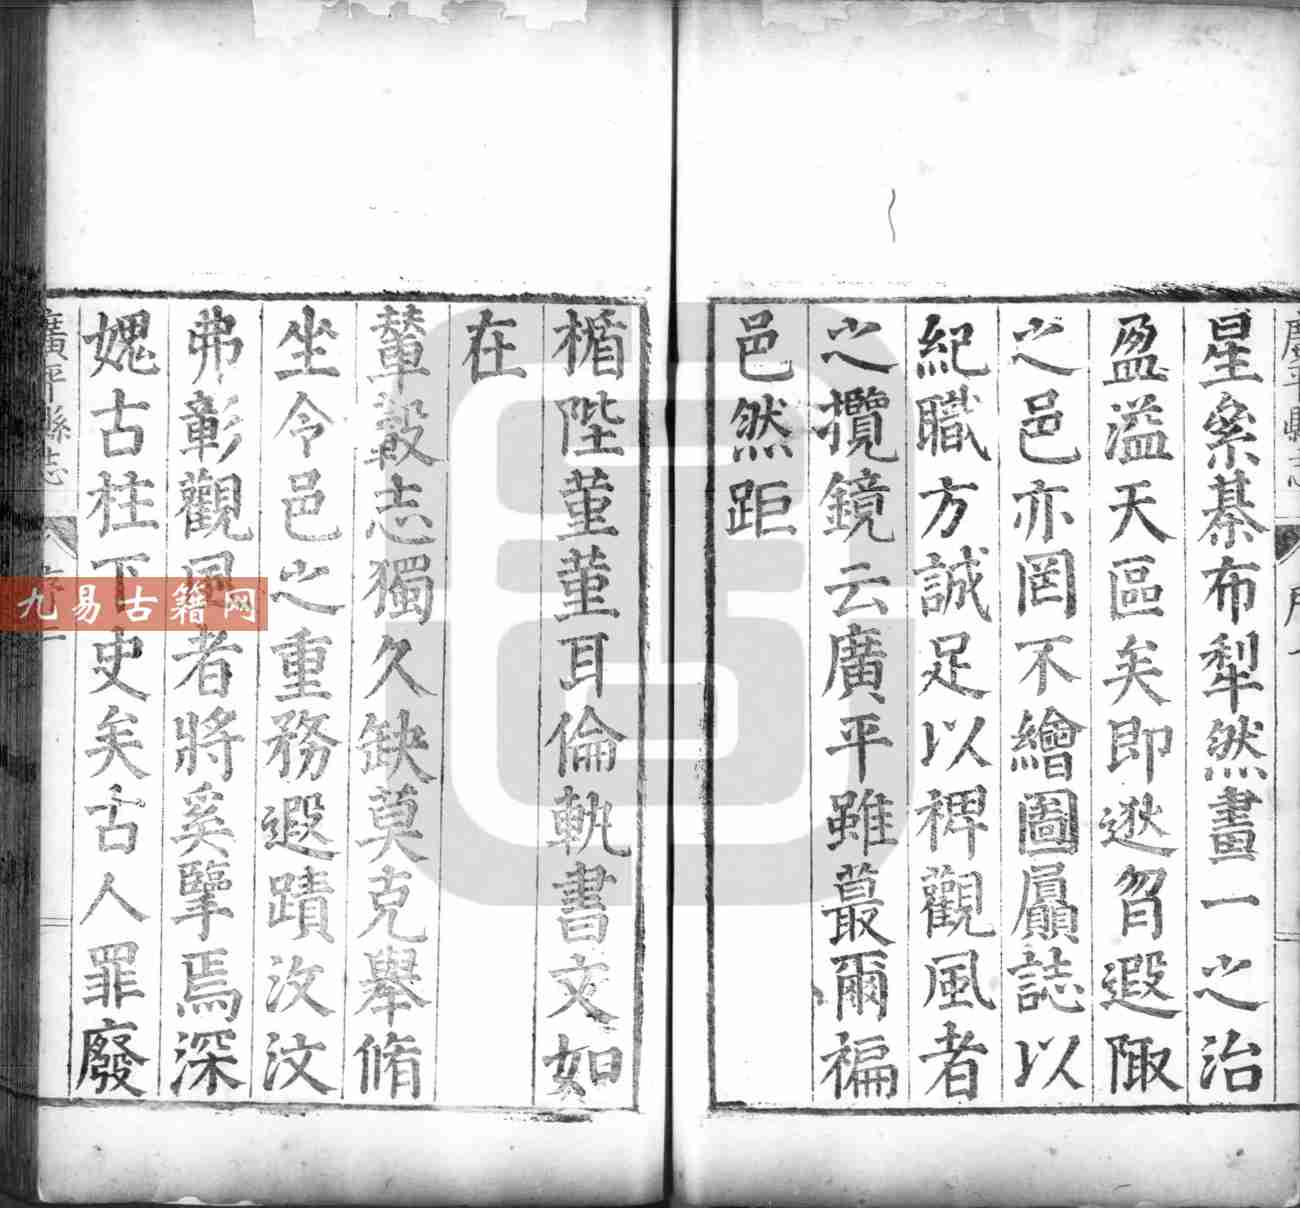 星絫棊布犁然畫一之治
盈溢天區矣即逖䏍遐陬
之邑亦罔不繪圖贔誌以
紀職方誠足以裨觀風者
之攬鏡云廣平雖蕞爾褊
邑然距
楯陛菫菫耳倫軌書文如
在
輦轂志獨久缺莫克舉脩
坐令邑之重務遐蹟汶汶
弗彰觀風者將奚擥焉深
媿古柱下史矣古人罪廢
廣平縣志
九易古籍网